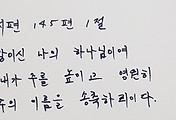 시편 145편 1절
왕이신 나의 하나님이여
내가 주를 높이고 영원히
주의 이름을 송축하리이다.